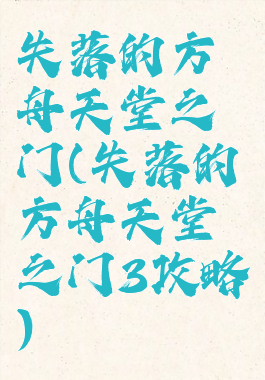 失落的方
舟天堂之
门(失落的
方舟天堂
之门3攻略
)